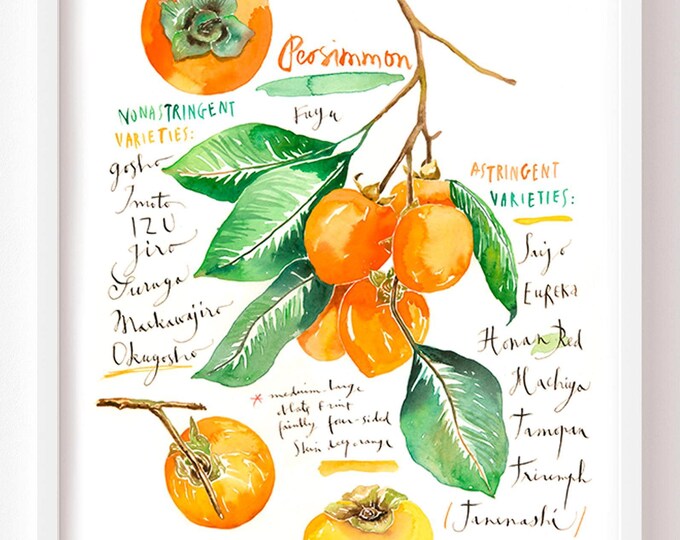 Persimmon
Fuyu
NONASTRINGENT
VARIETIES:
gosho
Imoto
IZU
Jiro
Suruga
Maekawajiro
Okugosho
ASTRINGENT
VARIETIES:
Saijo
EUREKA
Honan Red
Hachiya
Tamopan
Triumph
(Tanenashi)
* medium-large
oblate fruit
faintly four-sided
Skin deep orange